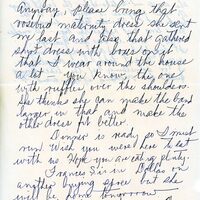 Anyway, please bring that
rosebud maternity dress she sent
me last and also that gathered
skirt dress with boxes on it
that I wear around the house
a lot - you know the one
with ruffles over the shoulders.
She thinks she can make the band
larger in that and make the
other dress fit better.
Dinner is ready so I must
run. Wish you were here to eat
with us. Hope you are eating plenty.
Frances S. is in Dallas on
another buying spree but she
will be home tomorrow